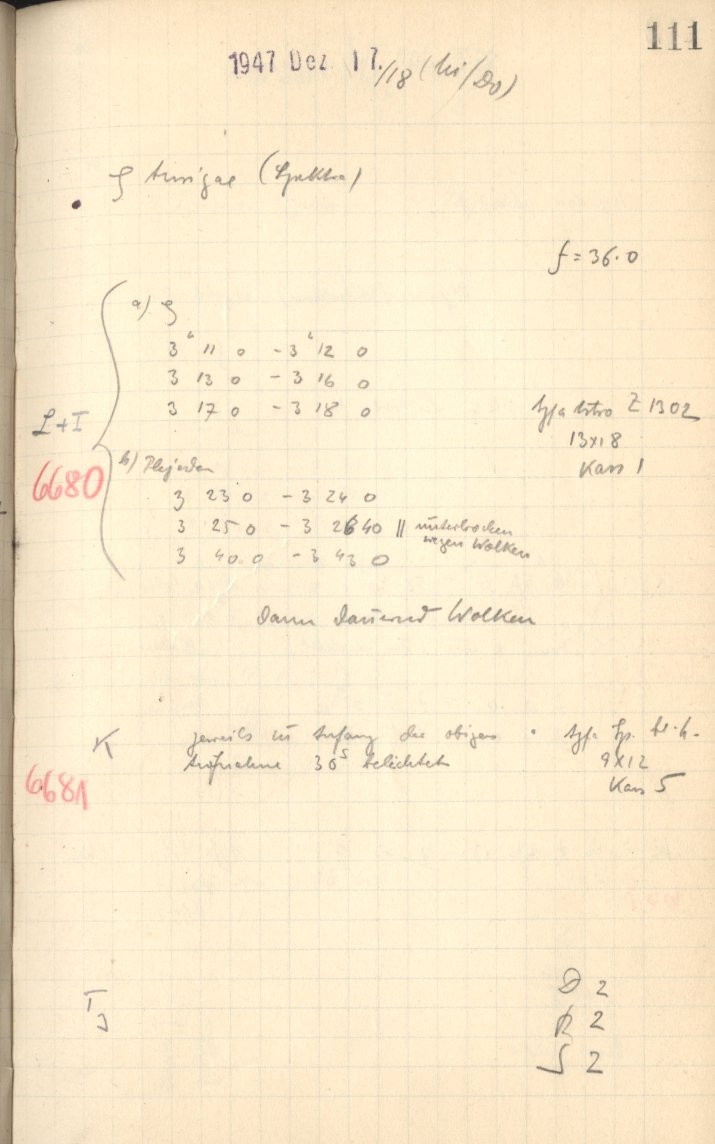 111
1947 Dez. 17./18 (Mi/Do)
ζ Aurigae (Spektra)
f = 36.0
a) ζ
3ʰ 11 0 - 3ʰ 12 0
3 13 0 - 3 16 0
3 17 0 - 3 18 0
L+I
Agfa Astro Z 1302
13x18
Kass 1
6680
b) Plejaden
3 23 0 - 3 24 0
3 25 0 - 3 26 40 || unterbrochen
wegen Wolken
3 40 0 - 3 43 0
Dann dauernd Wolken
K
jeweils im Anfang der obigen
Agfa Sp.
Aufnahme 30ˢ belichtet
9X12
6681
Kass 5
D 2
R 2
S 2